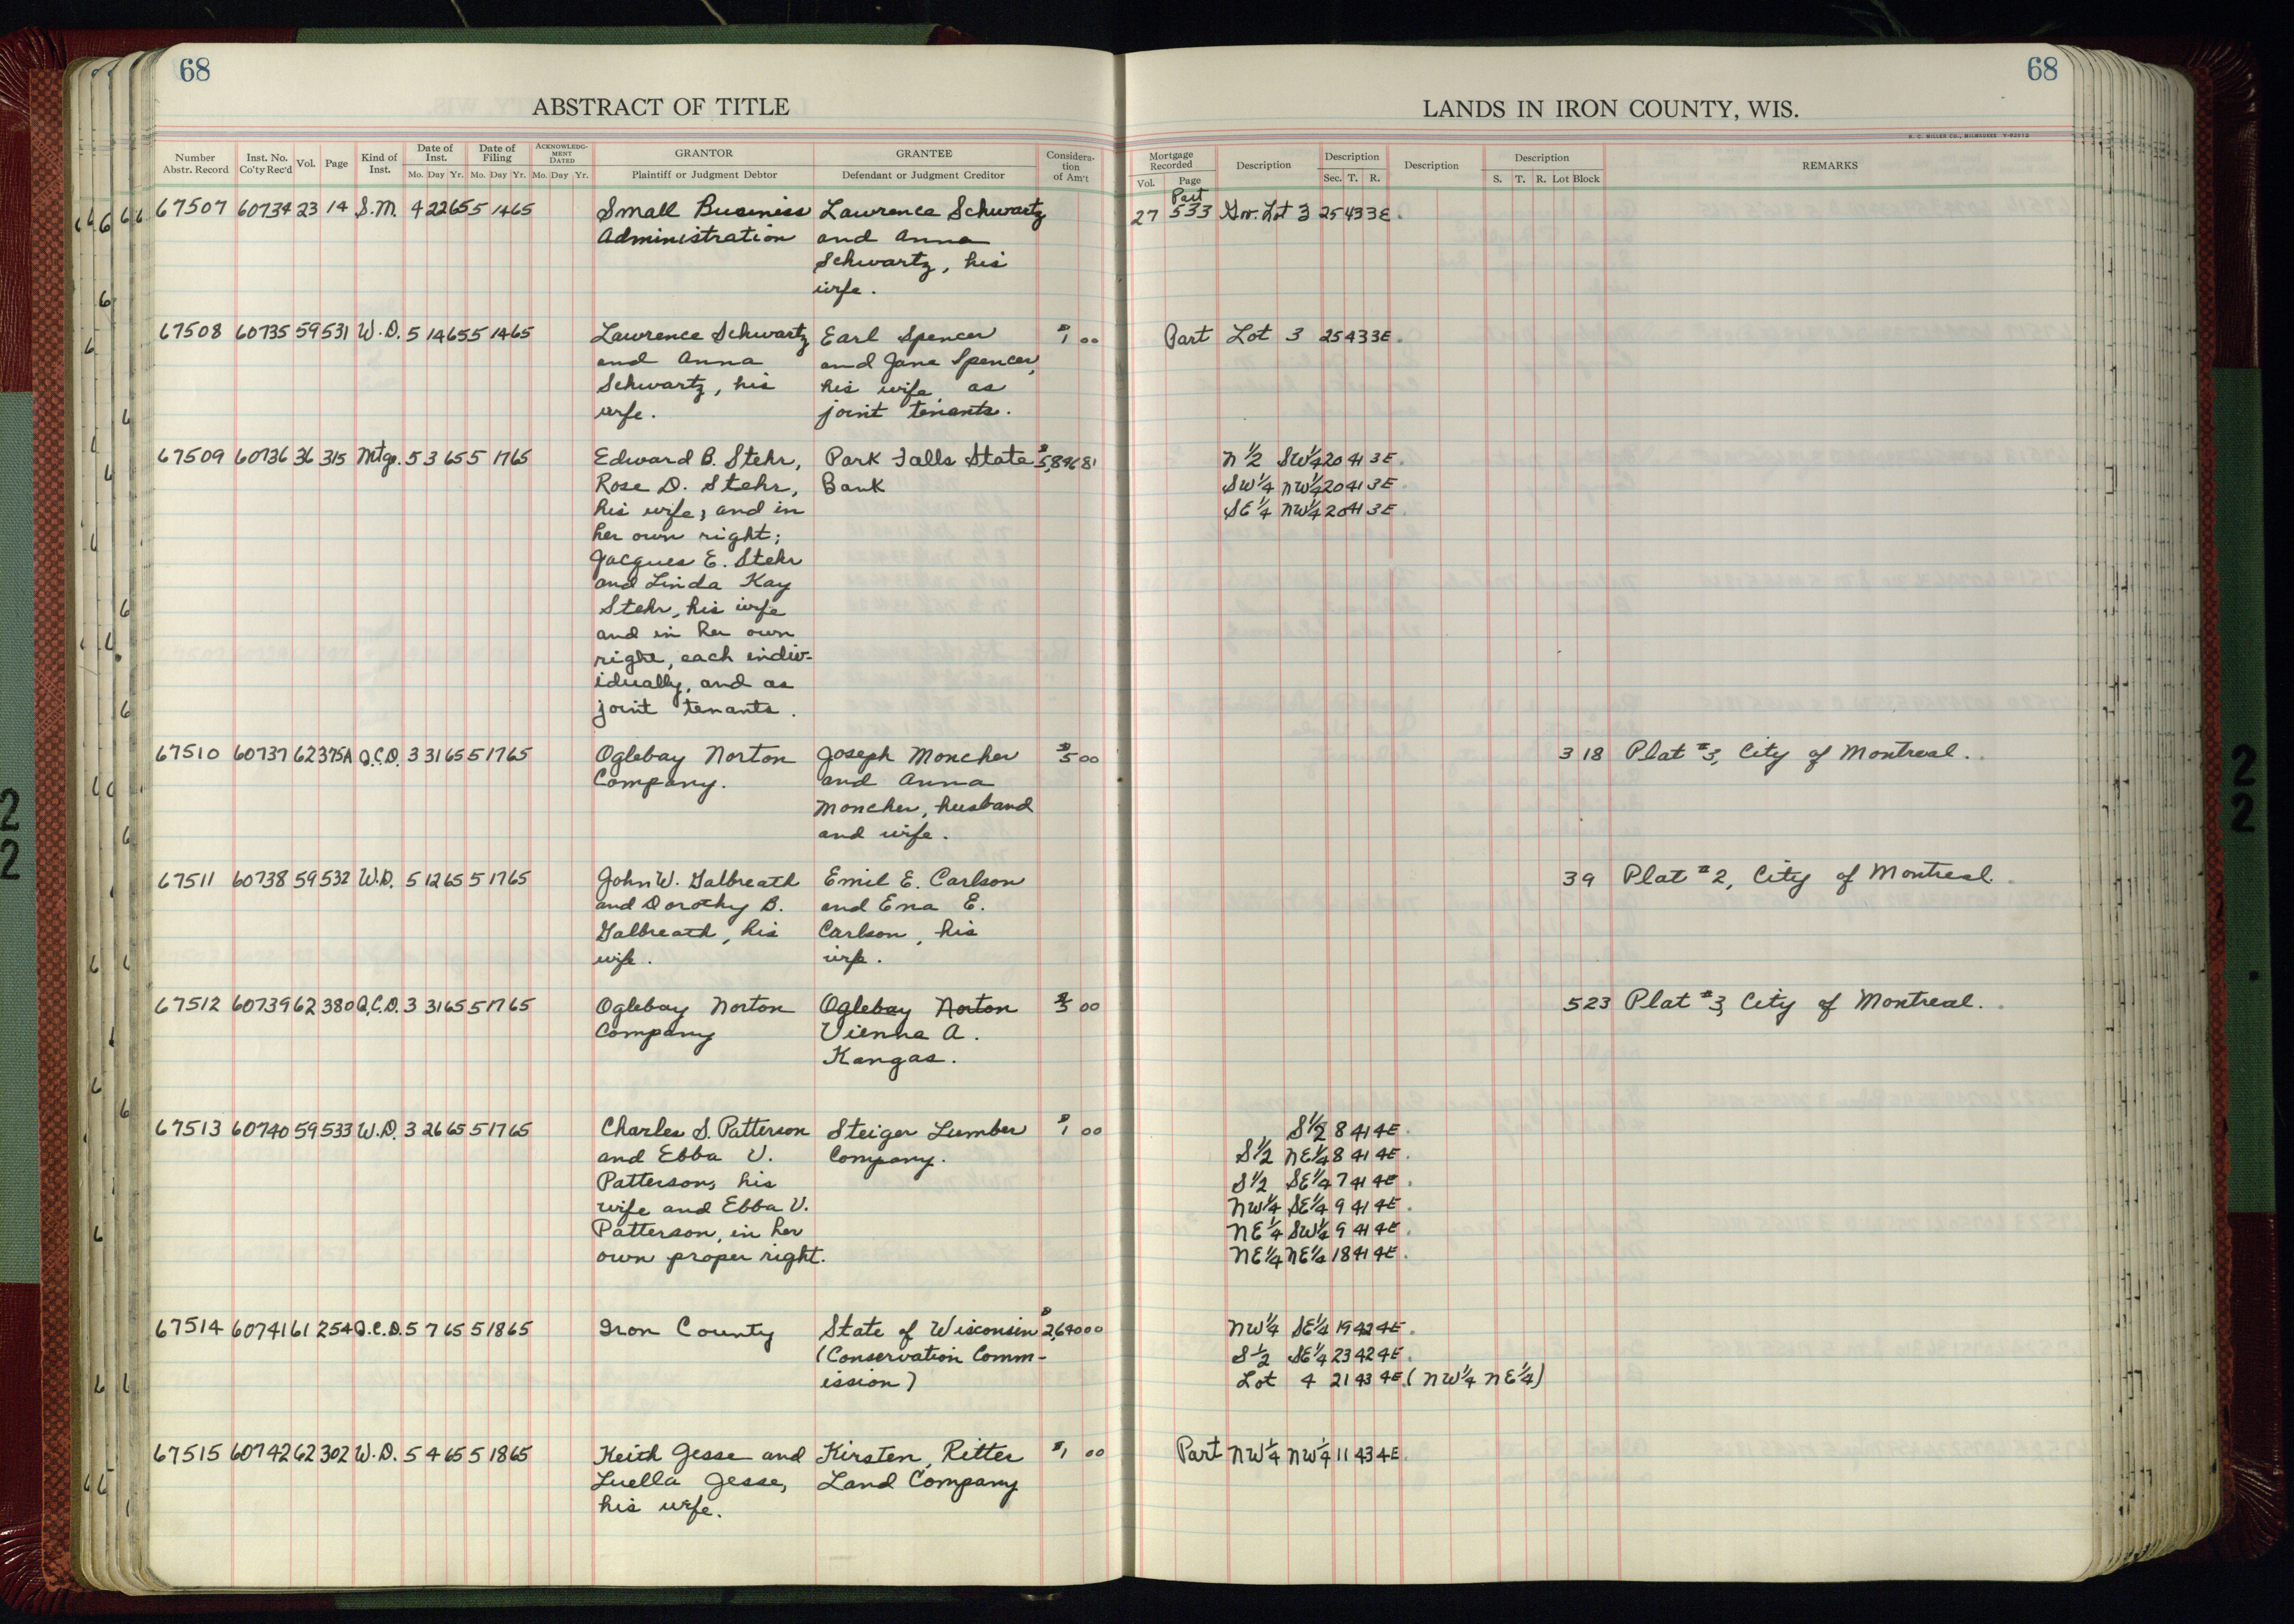 68
68
ABSTRACT OF TITLE
LANDS IN IRON COUNTY, WIS.
H. C. MILLER CO., MILWAUKEE
Number Abstr. Record Inst. No. Co'ty Rec'd Vol. Page Kind of Inst. Date of Inst. Mo. Day Yr. Date of Filing Mo. Day Yr. ACKNOWLEDG-MENT DATED Mo. Day Yr. GRANTOR Plaintiff or Judgment Debtor GRANTEE Defendant or Judgment Creditor Considera-tion of Am't
Mortgage Recorded Vol. Page Description Description Sec. T. R. Description Description S. T. R. Lot Block REMARKS
67507 60734 23 14 S.M. 4 22 65 5 14 65 Small Business Lawrence Schwartz 27 Part 533 Gov. Lot 3 25 43 3E.
Administration and Anna
Schwartz, his
wife.
67508 60735 59 531 W.D. 5 14 65 5 14 65 Lawrence Schwartz Earl Spencer $1 00 Part Lot 3 25 43 3E.
and Anna and Jane Spencer,
Schwartz, his his wife, as
wife. joint tenants.
67509 60736 36 315 Mtg. 5 3 65 5 17 65 Edward B. Stehr, Park Falls State $5,896 81 N 1/2 SW 1/4 20 41 3E.
Rose D. Stehr, Bank SW 1/4 NW 1/4 20 41 3E.
his wife, and in SE 1/4 NW 1/4 20 41 3E.
her own right;
Jacques E. Stehr
and Linda Kay
Stehr, his wife
and in her own
right, each indiv-
idually, and as
joint tenants.
67510 60737 62 375A Q.C.D. 3 31 65 5 17 65 Oglebay Norton Joseph Moncher $5 00 3 18 Plat #3, City of Montreal.
Company. and Anna
Moncher, husband
and wife.
67511 60738 59 532 W.D. 5 12 65 5 17 65 John W. Galbreath Emil E. Carlson 39 Plat #2, City of Montreal.
and Dorothy B. and Ena E.
Galbreath, his Carlson, his
wife. wife.
67512 60739 62 380 Q.C.D. 3 31 65 5 17 65 Oglebay Norton Oglebay Norton $5 00 5 23 Plat #3, City of Montreal.
Company Vienna A.
Kangas.
67513 60740 59 533 W.D. 3 26 65 5 17 65 Charles S. Patterson Steiger Lumber $1 00 S 1/2 8 41 4E.
and Ebba V. Company. S 1/2 NE 1/4 8 41 4E.
Patterson, his S 1/2 SE 1/4 7 41 4E.
wife and Ebba V. NW 1/4 SE 1/4 9 41 4E.
Patterson, in her NE 1/4 SW 1/4 9 41 4E.
own proper right. NE 1/4 NE 1/4 18 41 4E.
67514 60741 61 254 Q.C.D. 5 7 65 5 18 65 Iron County State of Wisconsin $2,640 00 NW 1/4 SE 1/4 19 42 4E.
(Conservation Comm- S 1/2 SE 1/4 23 42 4E.
ission) Lot 4 21 43 4E. (NW 1/4 NE 1/4)
67515 60742 62 302 W.D. 5 4 65 5 18 65 Keith Jesse and Kirsten, Ritter $1 00 Part NW 1/4 NW 1/4 11 43 4E.
Luella Jesse, Land Company
his wife.